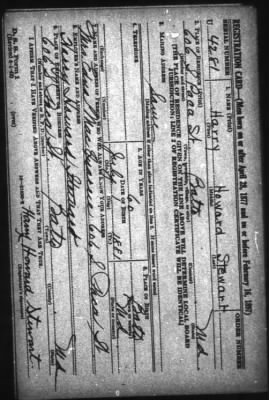 REGISTRATION CARD—(Men born on or after April 28, 1877 and on or before February 16, 1897)
SERIAL NUMBER 1. NAME (Print) ORDER NUMBER
U 4281 Harry Howard Stewart
(First) (Middle) (Last)
2. PLACE OF RESIDENCE (Print)
616 S Paca St Balto Md
(THE PLACE OF RESIDENCE GIVEN ON THE LINE ABOVE WILL DETERMINE LOCAL BOARD
JURISDICTION; LINE 2 OF REGISTRATION CERTIFICATE WILL BE IDENTICAL)
3. MAILING ADDRESS
Same
4. TELEPHONE
5. AGE IN YEARS
60
DATE OF BIRTH
1881
6. PLACE OF BIRTH
Balto
Md
7. NAME AND ADDRESS OF PERSON WHO WILL ALWAYS KNOW YOUR ADDRESS
616 S Paca St
8. EMPLOYER'S NAME AND ADDRESS
9. PLACE OF EMPLOYMENT OR BUSINESS
616 S Paca St Balto Md
I AFFIRM THAT I HAVE VERIFIED ABOVE ANSWERS AND THAT THEY ARE TRUE.
D. S. S. Form 1
Harry Howard Stewart